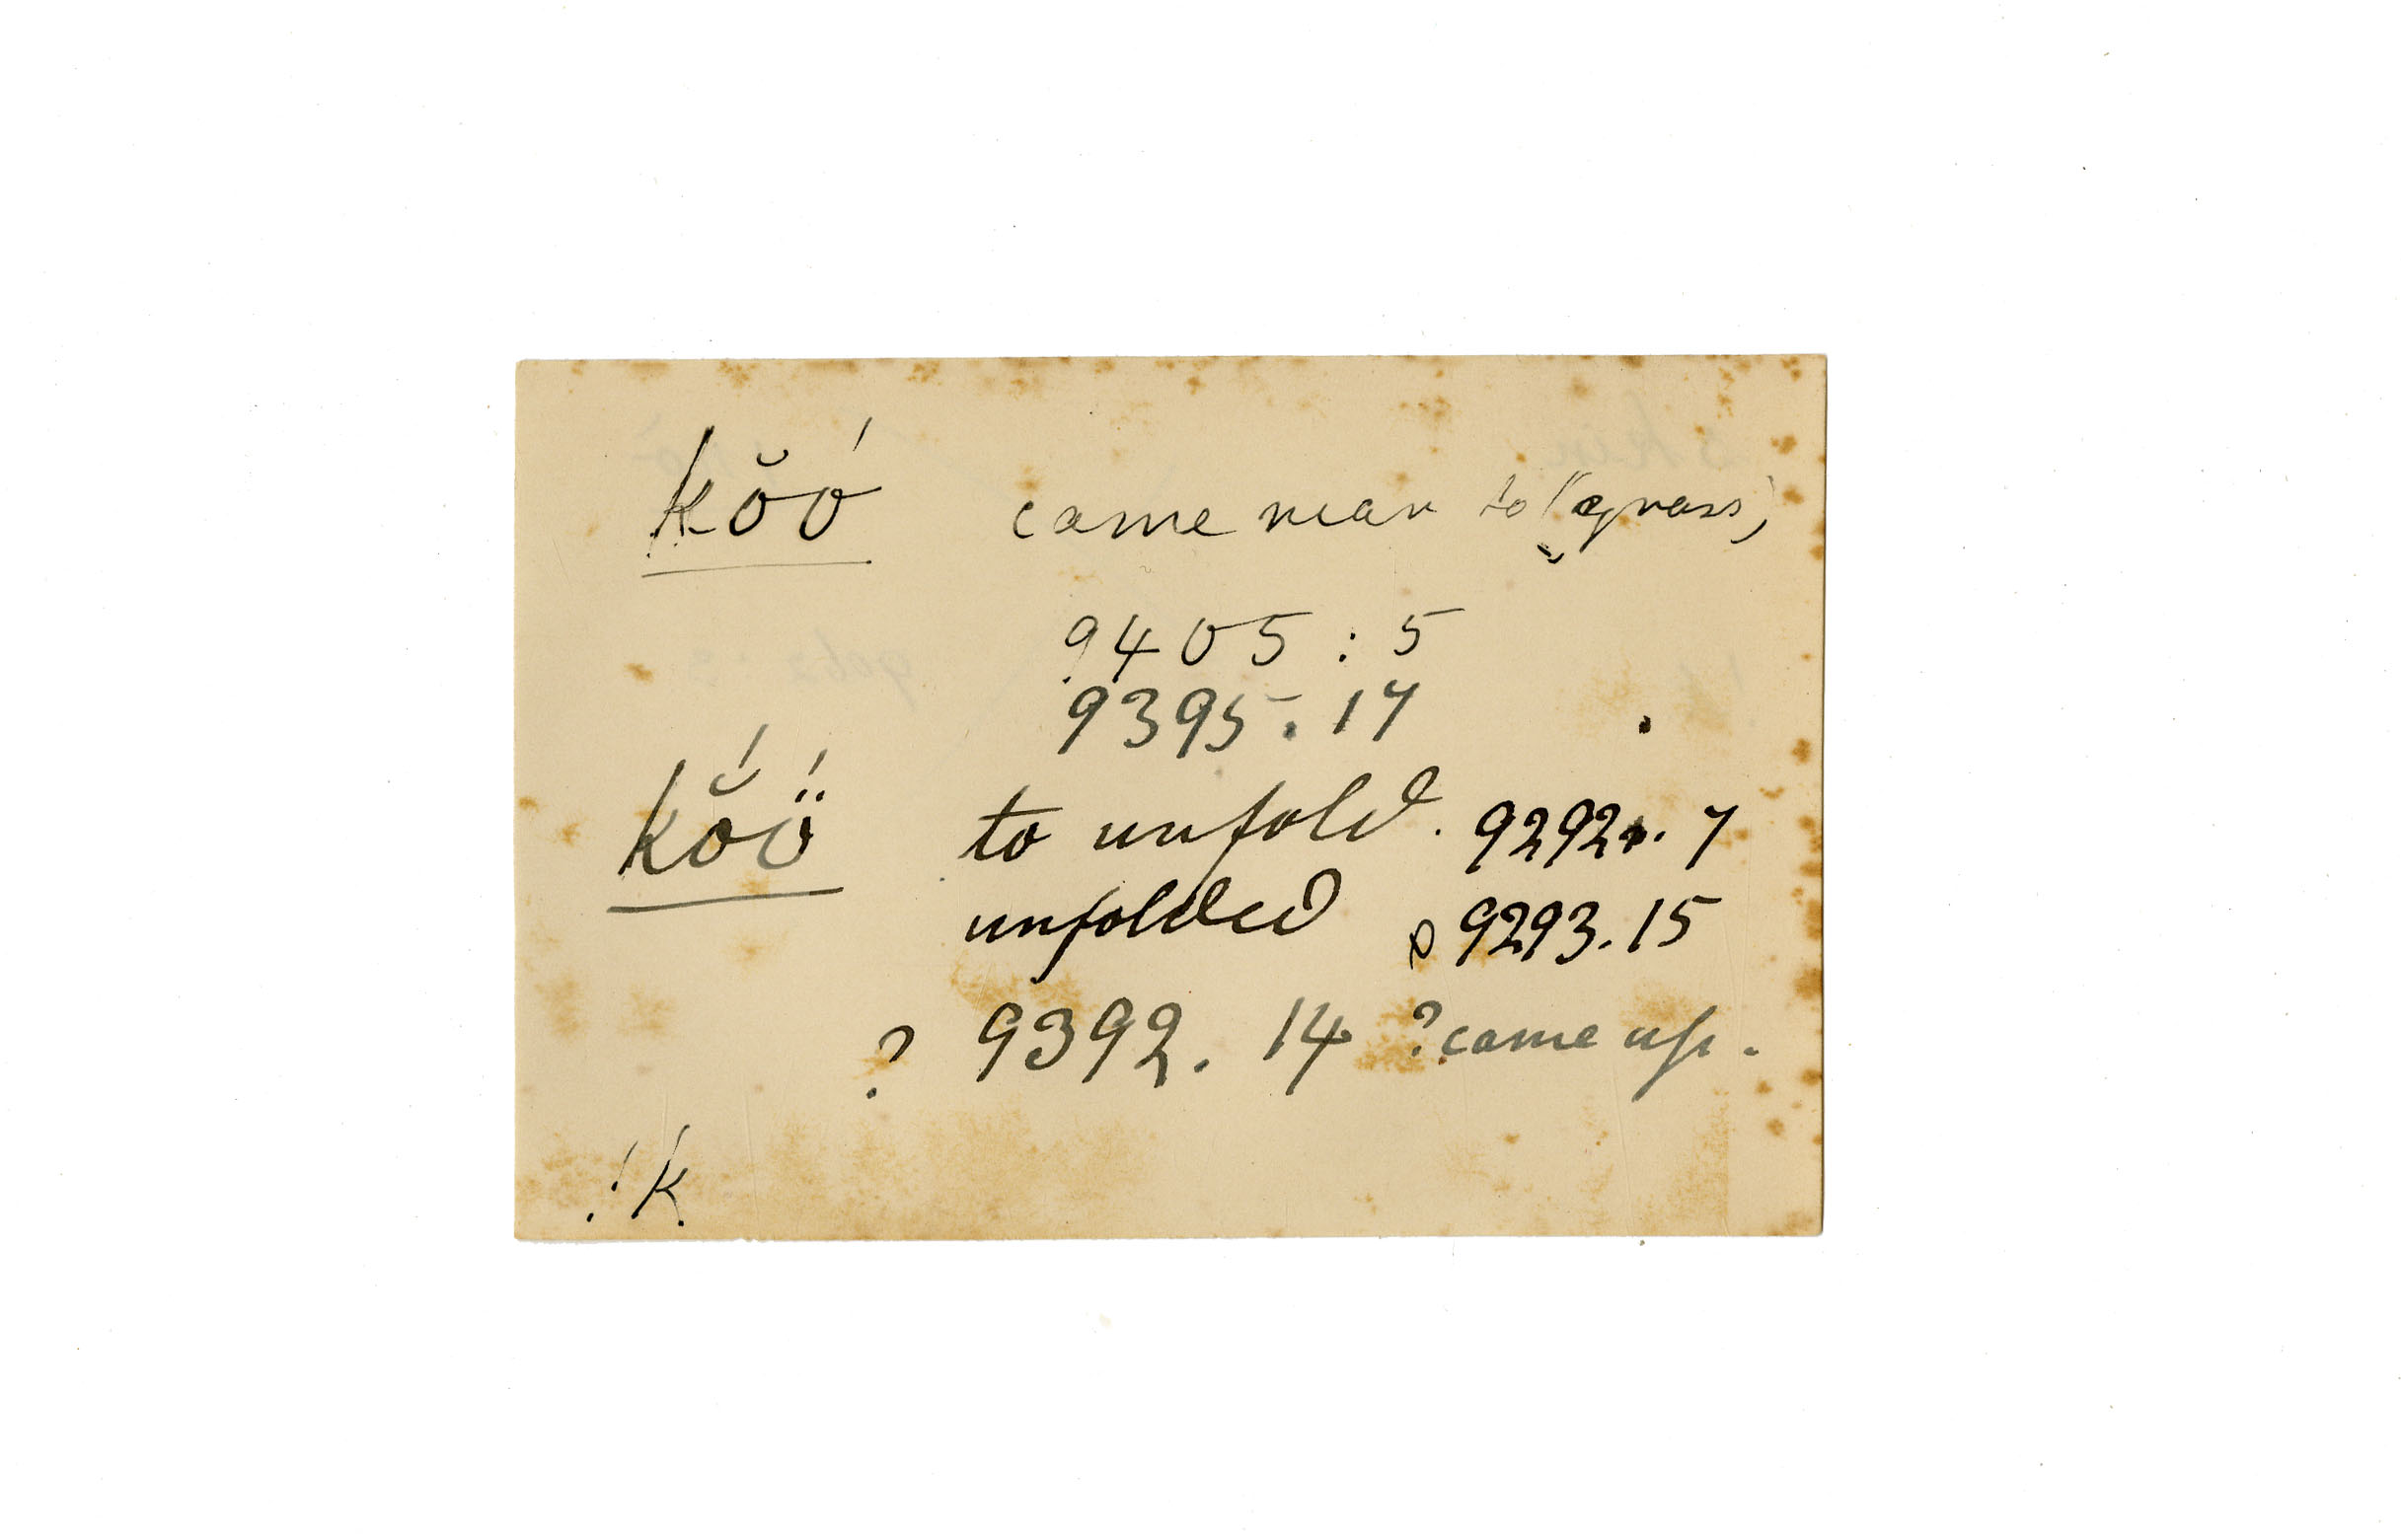 kŏó came near to (grass)
9405 : 5
9395. 17
kŏ́ö́ to unfold. 9292. 7
unfolded 9293. 15
? 9392. 14 ? came up.
!k